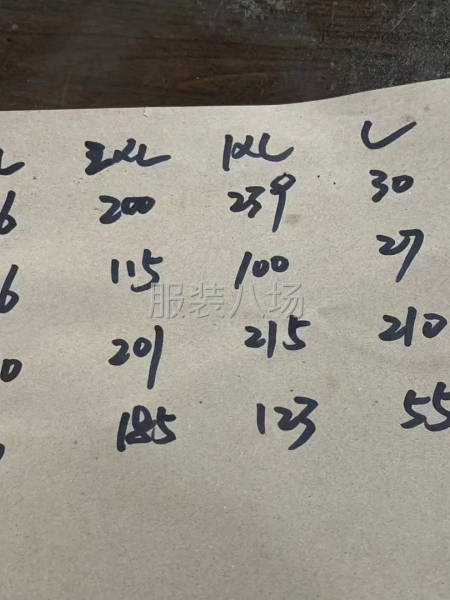 L 2XL 1XL L
6 200 239 30
6 115 100 27
服装八场
0 201 215 210
185 123 55